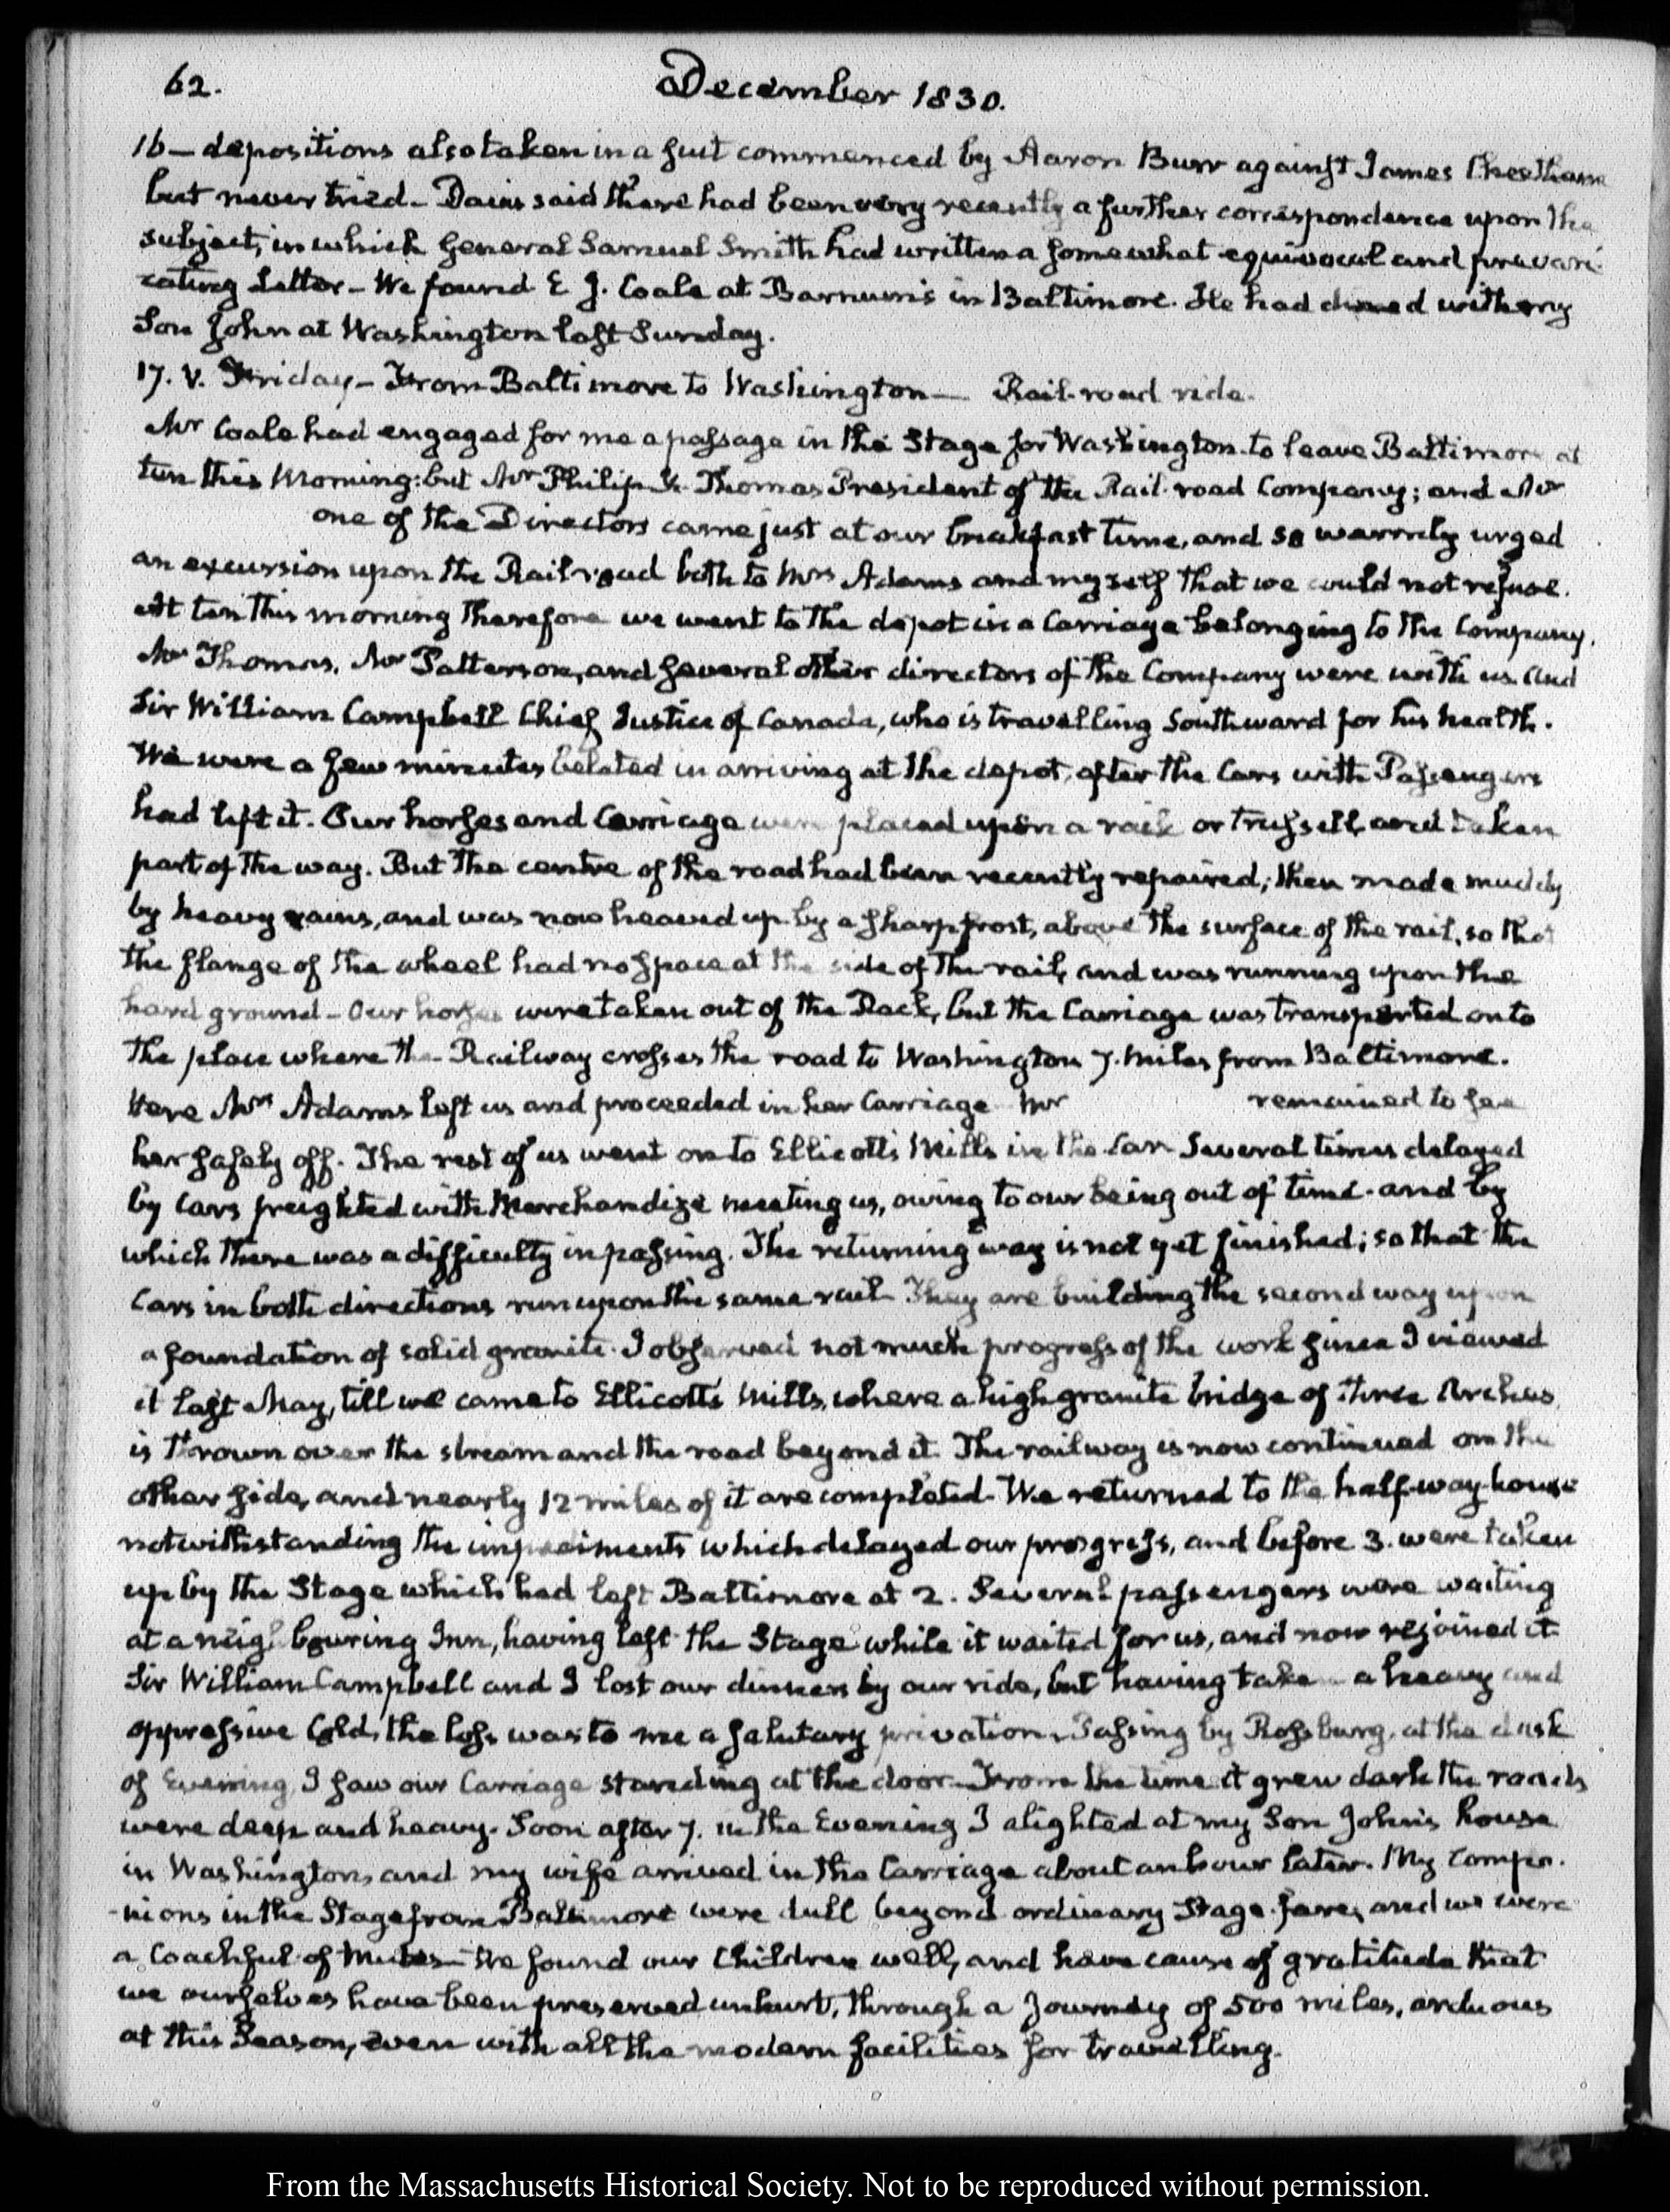 62.
December 1830.
16 — depositions also taken in a suit commenced by Aaron Burr against James Cheetham
but never tried — Davis said there had been very recently a further correspondence upon the
subject, in which General Samuel Smith had written a somewhat equivocal and prevari-
cating Letter — We found E J. Coale at Barnum's in Baltimore. He had dined with my
Son John at Washington last Sunday.
17. V. Friday — From Baltimore to Washington — Rail-road ride.
Mr Coale had engaged for me a passage in the Stage for Washington to leave Baltimore at
ten this Morning: but Mr Philip Thomas President of the Rail road Company; and Mr
one of the Directors came just at our breakfast time, and so warmly urged
an excursion upon the Rail-road both to Mrs Adams and myself that we could not refuse.
At ten this morning therefore we went to the depot in a Carriage belonging to the Company.
Mr Thomas, Mr Patterson, and several other directors of the Company were with us and
Sir William Campbell Chief Justice of Canada, who is travelling Southward for his health.
We were a few minutes belated in arriving at the depot, after the Cars with Passengers
had left it. Our horses and Carriage were placed upon a rack or trussell, and taken
part of the way. But the centre of the road had been recently repaired; then made muddy
by heavy rains, and was now heaved up by a sharp frost, above the surface of the rail, so that
the flange of the wheel had no space at the side of the rail, and was running upon the
hard ground — Our horses were taken out of the Rack, but the Carriage was transported on to
the place where the Railway crosses the road to Washington 7. miles from Baltimore.
Here Mrs Adams left us and proceeded in her Carriage Mr remained to see
her safely off. The rest of us went on to Ellicott's Mills in the Car Several times delayed
by Cars freighted with Merchandize meeting us, owing to our being out of time. and by
which there was a difficulty in passing. The returning way is not yet finished; so that the
Cars in both directions run upon the same rail They are building the second way upon
a foundation of solid granite. I observed not much progress of the work since I viewed
it last May, till we came to Ellicott's Mills, where a high granite bridge of three Arches
is thrown over the stream and the road beyond it. The railway is now continued on the
other side, and nearly 12 miles of it are completed. We returned to the half-way-house
notwithstanding the impediments which delayed our progress, and before 3. were taken
up by the Stage which had left Baltimore at 2. Several passengers were waiting
at a neighbouring Inn, having left the Stage while it waited for us, and now rejoined it
Sir William Campbell and I lost our dinners by our ride, but having taken a heavy and
oppressive Cold, the loss was to me a salutary privation. Passing by Rossburg, at the dusk
of Evening, I saw our Carriage standing at the door. From the time it grew dark the roads
were deep and heavy. Soon after 7. in the Evening I alighted at my Son John's house
in Washington, and my wife arrived in the Carriage about an hour later. My Compa-
-nions in the Stage from Baltimore were dull beyond ordinary Stage-fare, and we were
a Coachful of Mutes — We found our Children well, and have cause of gratitude that
we ourselves have been preserved unhurt, through a Journey of 500 miles, arduous
at this Season, even with all the modern facilities for travelling.
From the Massachusetts Historical Society. Not to be reproduced without permission.